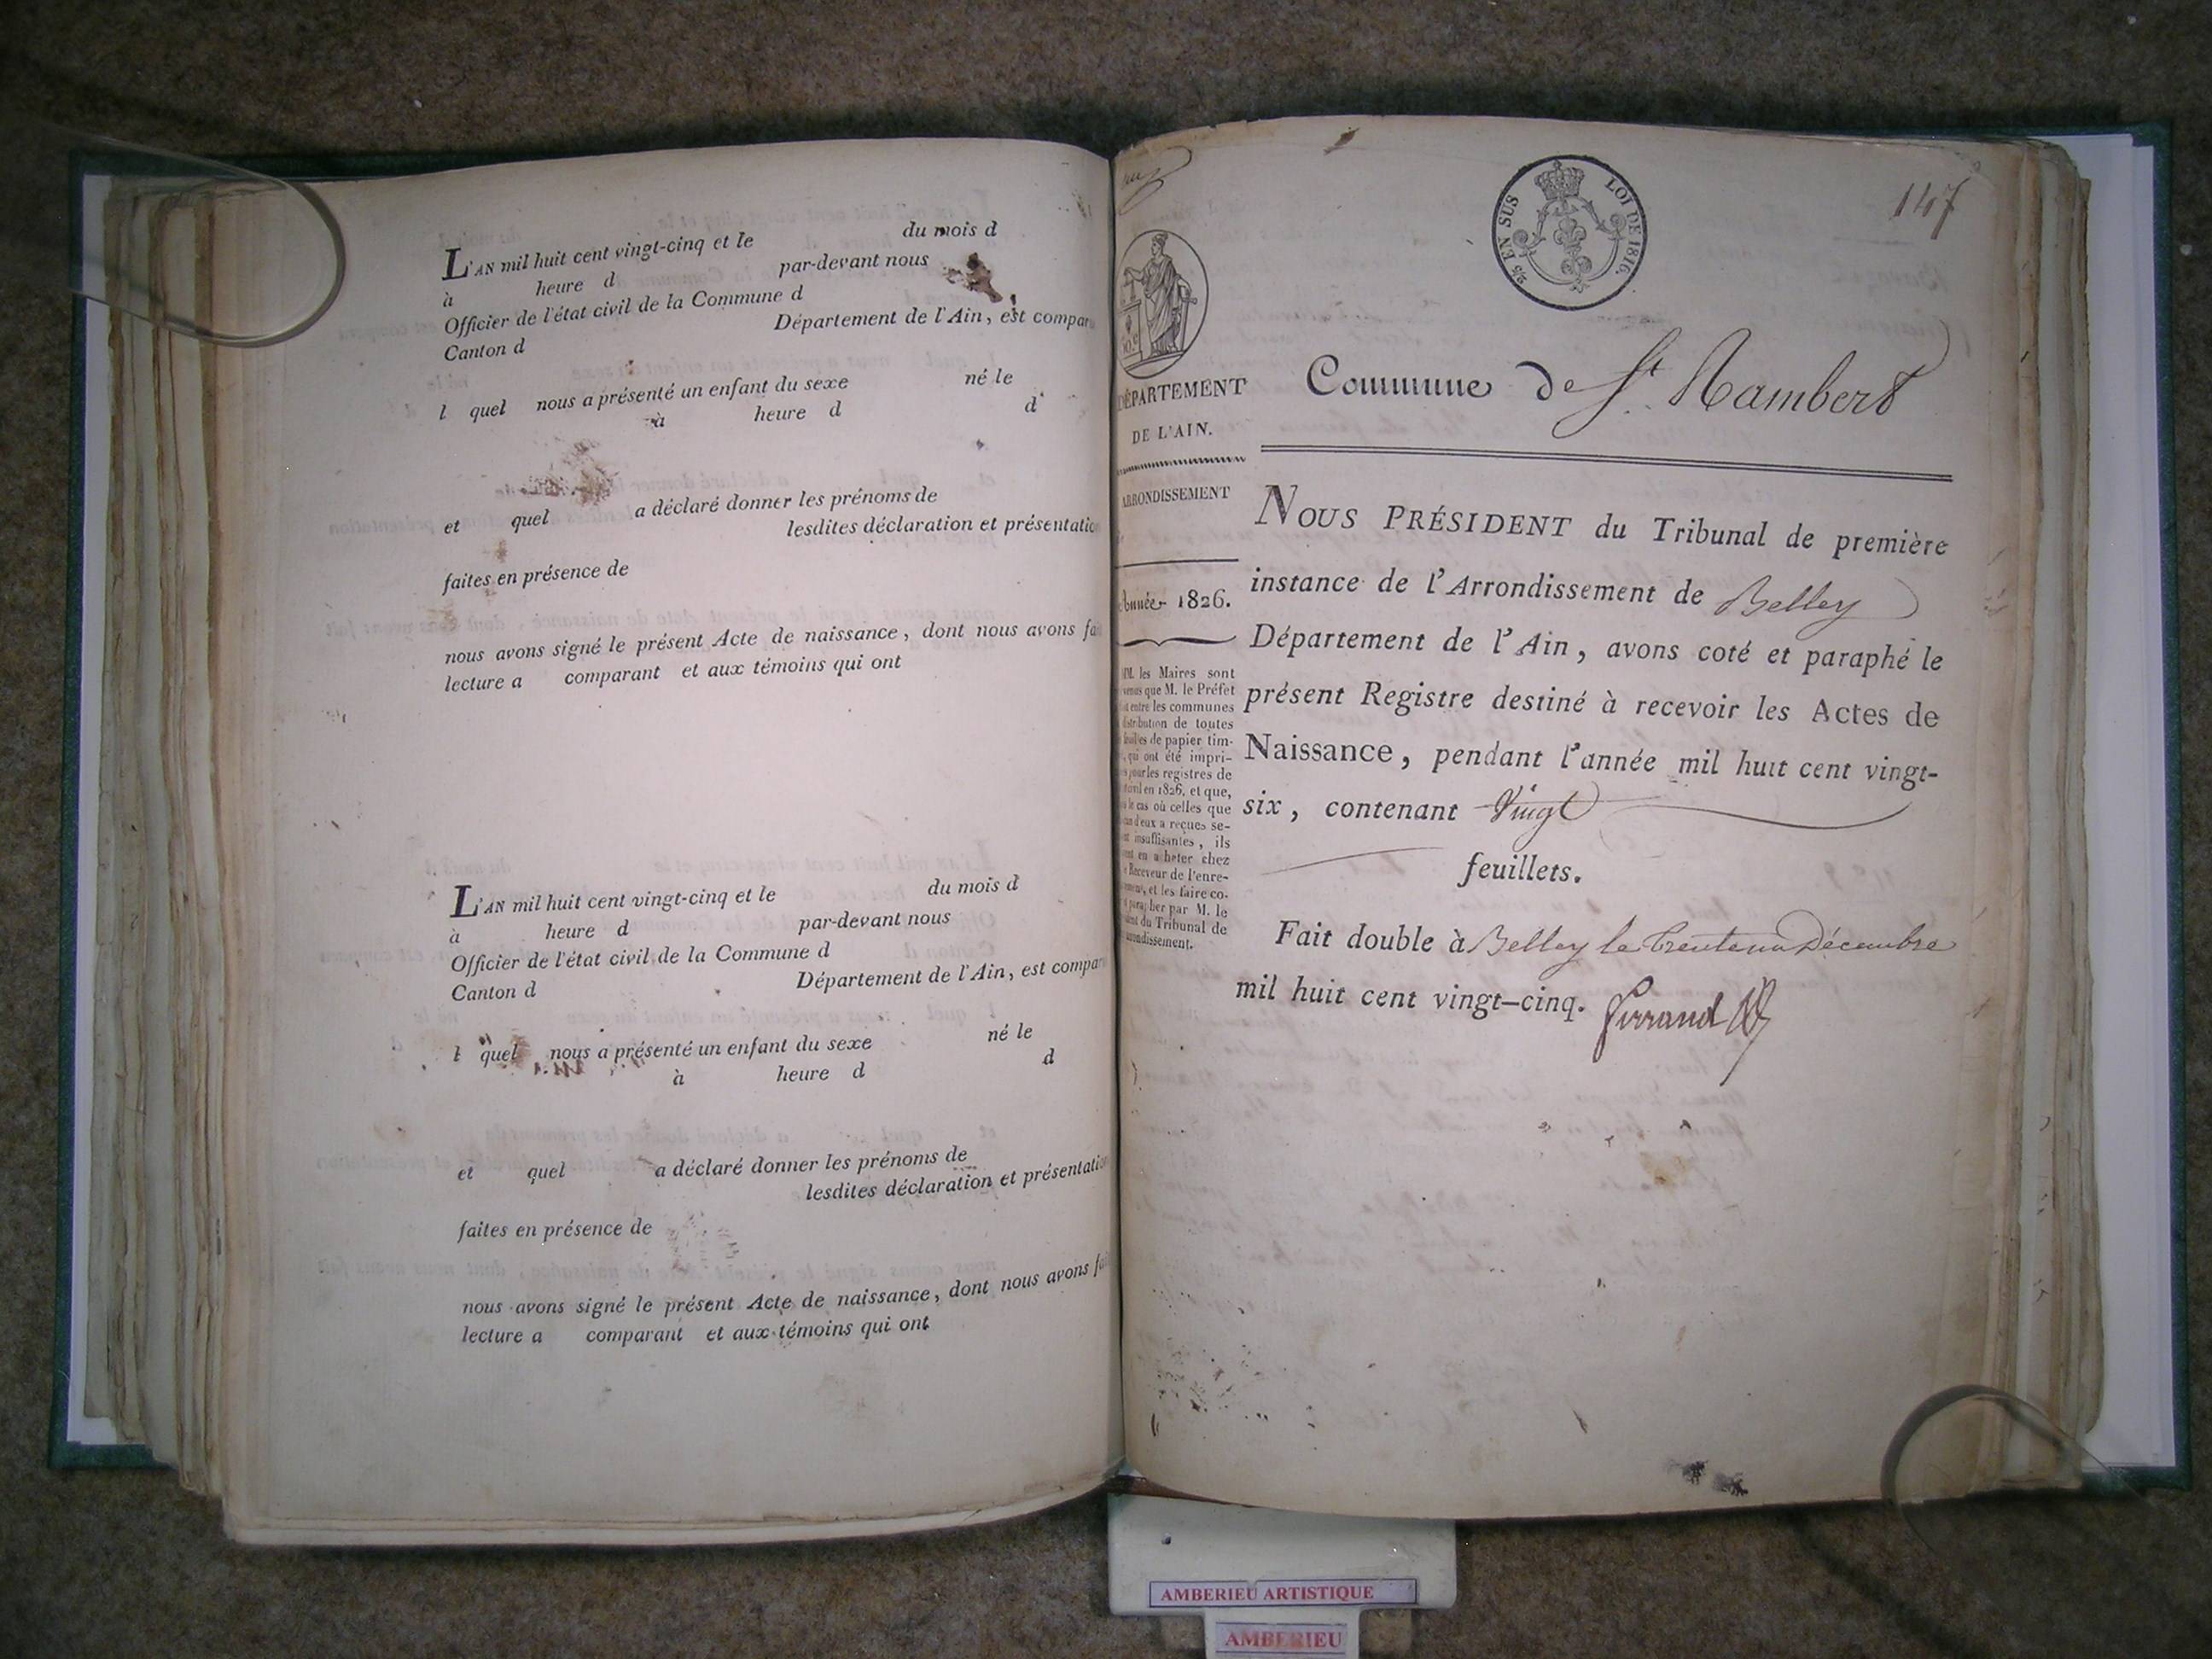 L'AN mil huit cent vingt-cinq et le du mois d
à heure d par-devant nous
Officier de l'état civil de la Commune d
Canton d Département de l'Ain, est compar
l quel nous a présenté un enfant du sexe né le
à heure d d
et quel a déclaré donner les prénoms de
lesdites déclaration et présentatio
faites en présence de
nous avons signé le présent Acte de naissance, dont nous avons fai
lecture a comparant et aux témoins qui ont
L'AN mil huit cent vingt-cinq et le du mois d
à heure d par-devant nous
Officier de l'état civil de la Commune d
Canton d Département de l'Ain, est compar
l quel nous a présenté un enfant du sexe né le
à heure d d
et quel a déclaré donner les prénoms de
lesdites déclaration et présentatio
faites en présence de
nous avons signé le présent Acte de naissance, dont nous avons fai
lecture a comparant et aux témoins qui ont
EN SUS LOI DE 1816.
147
DÉPARTEMENT
DE L'AIN.
ARRONDISSEMENT
Année 1826.
MM. les Maires sont
venus que M. le Préfet
entre les communes
distribution de toutes
feuilles de papier tim-
qui ont été impri-
pour les registres de
en 1826, et que,
le cas où celles que
d'eux a reçues se-
insuffisantes, ils
en a heter chez
Receveur de l'enre-
et les faire co-
parapher par M. le
du Tribunal de
arrondissement.
Commune de St. Rambert
NOUS PRÉSIDENT du Tribunal de première
instance de l'Arrondissement de Belley
Département de l'Ain, avons coté et paraphé le
présent Registre destiné à recevoir les Actes de
Naissance, pendant l'année mil huit cent vingt-
six, contenant Vingt
feuillets.
Fait double à Belley le trente un Décembre
mil huit cent vingt-cinq. Ferrand
AMBERIEU ARTISTIQUE
AMBERIEU